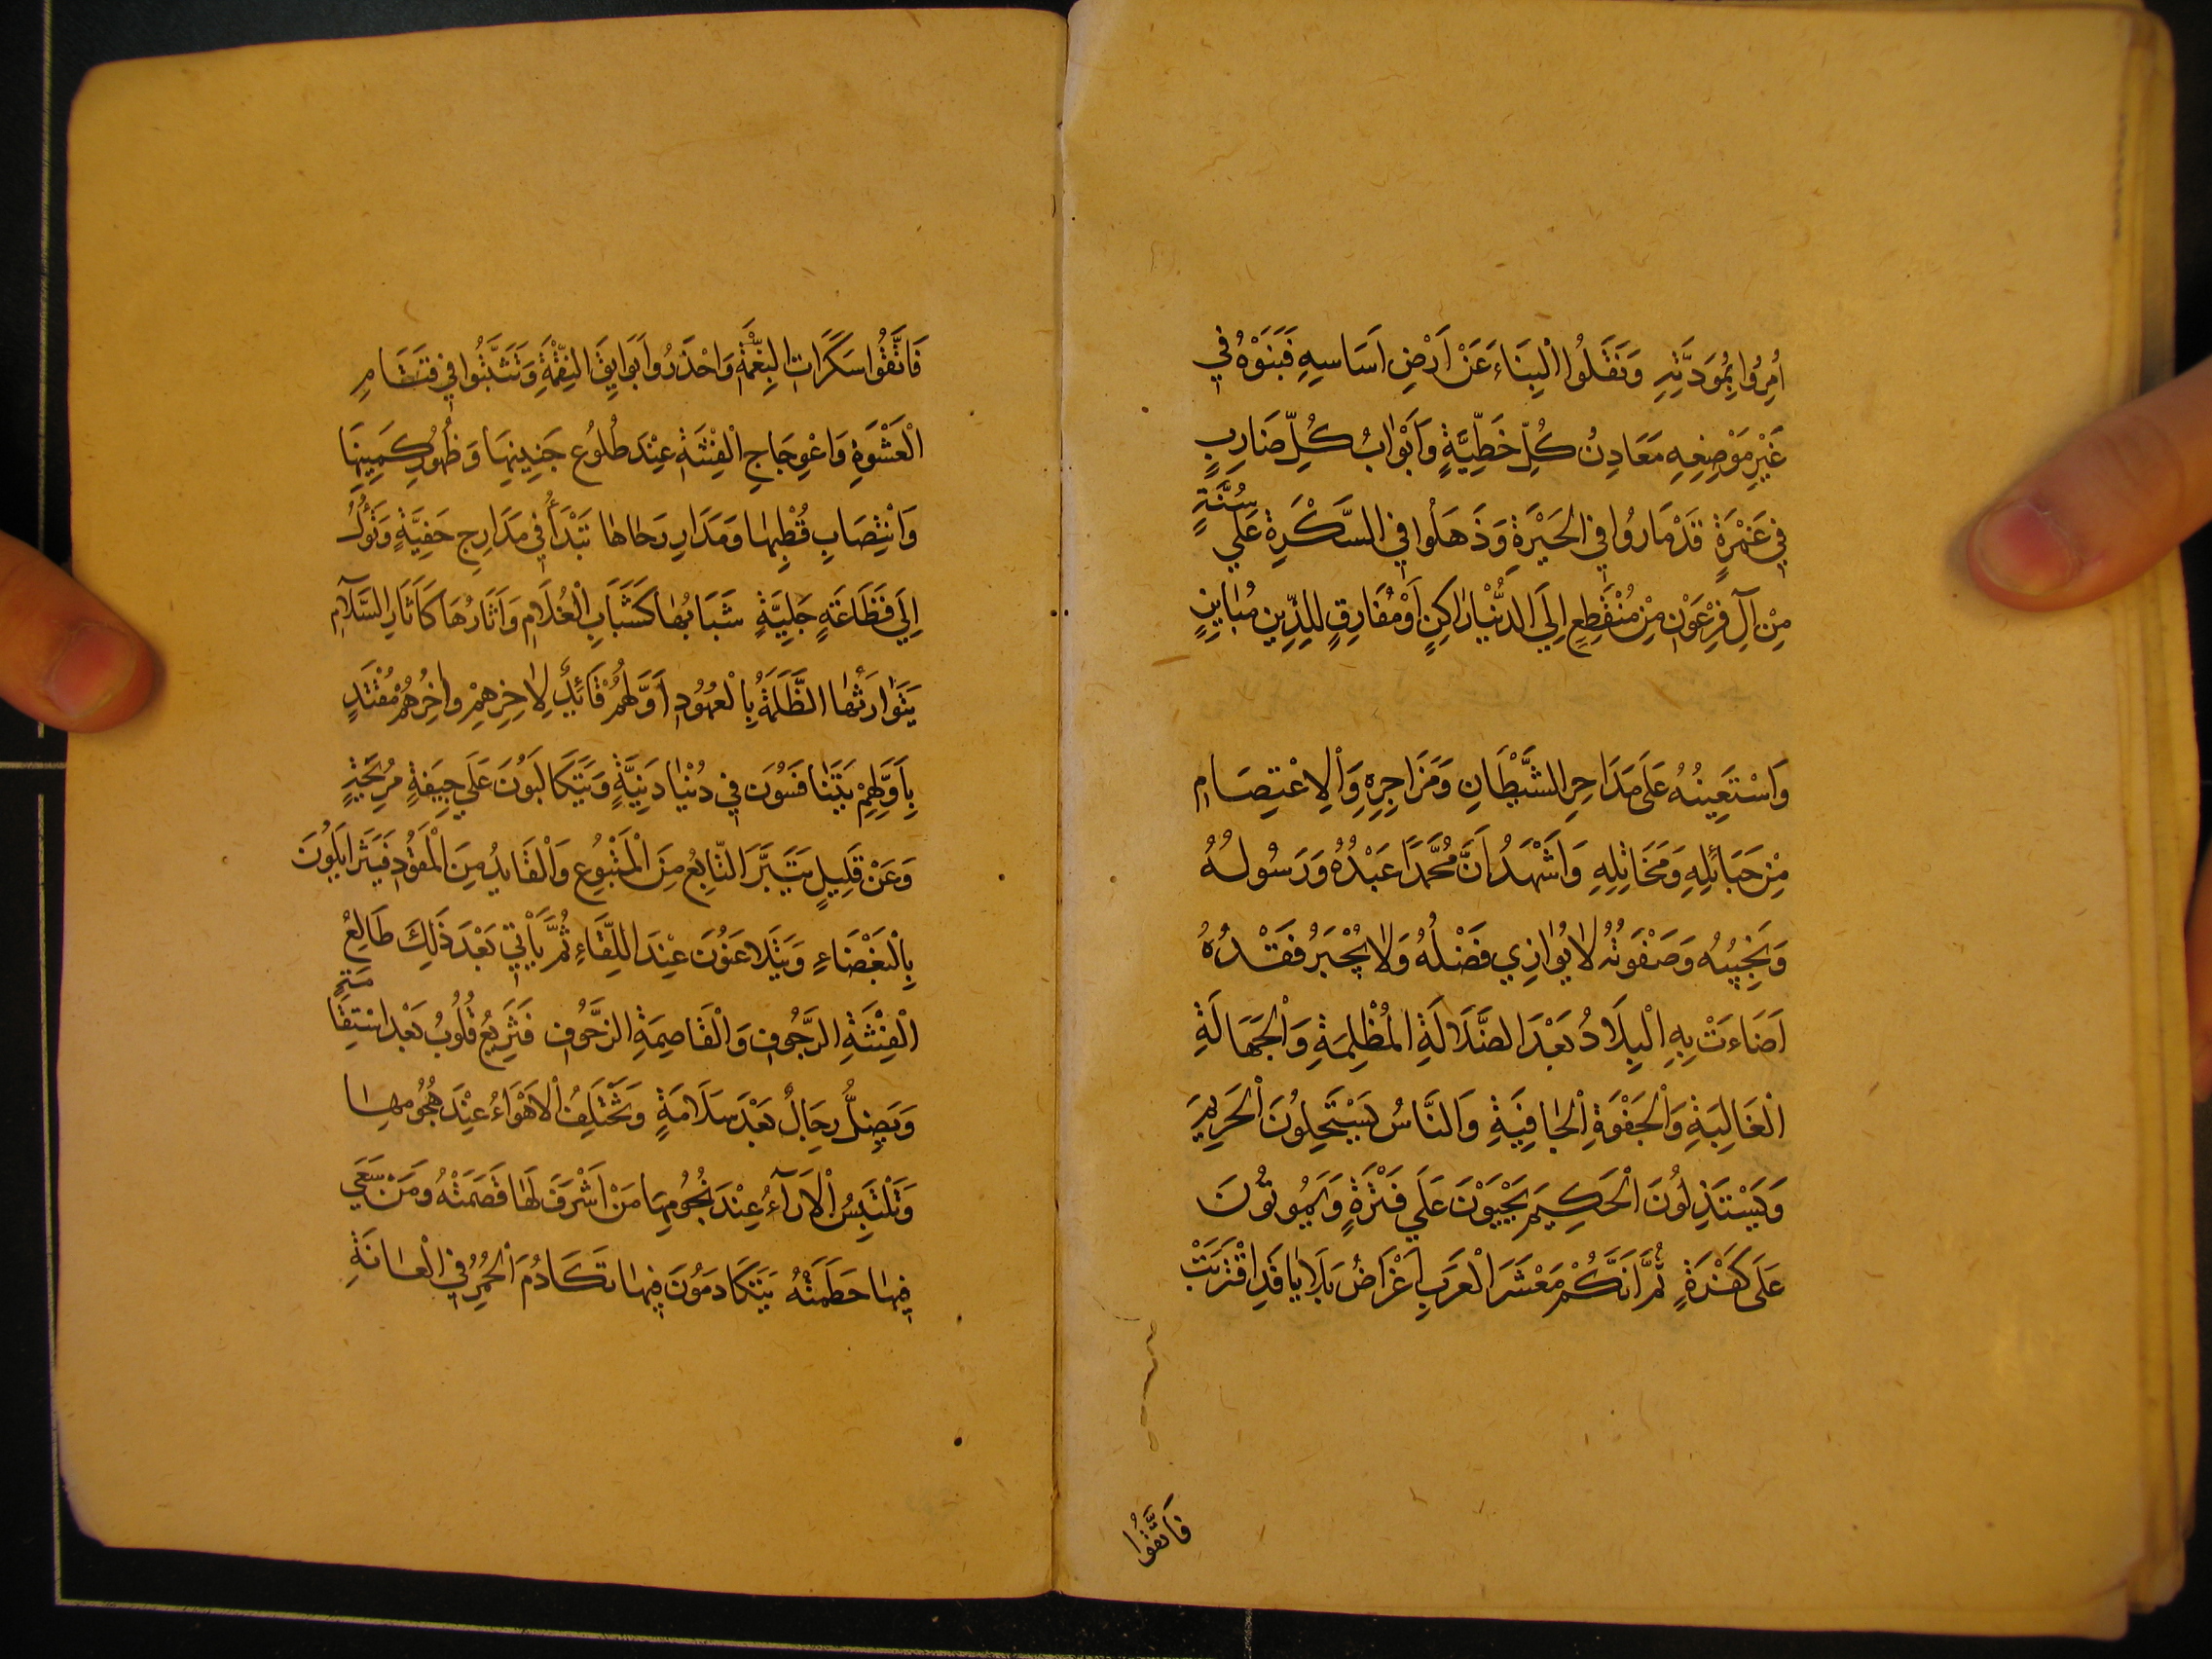 أُمِرُوا بِمَوَدَّتِهِ وَنَقَلُوا الْبِنَاءَ عَنْ اَرْضِ اَسَاسِهِ فَبَنَوْهُ فِي
غَيْرِ مَوْضِعِهِ مَعَادِنُ كُلِّ خَطِيَّةٍ وَاَبْوَابُ كُلِّ ضَارِبٍ
فِي غَمْرَةٍ قَدْ مَارُوا فِي الْحَيْرَةِ وَذَهَلُوا فِي السَّكْرَةِ عَلَي سُنَّةٍ
مِنْ آلِ فِرْعَوْنَ مِنْ مُنْقَطِعٍ اِلَي الدُّنْيَا رَاكِنٍ اَوْ مُفَارِقٍ لِلدِّينِ مُبَايِنٍ
وَاَسْتَعِينُهُ عَلَي مَدَاحِرِ الشَّيْطَانِ وَمَزَاجِرِهِ وَالْاِعْتِصَامِ
مِنْ حَبَائِلِهِ وَمَخَاتِلِهِ وَاَشْهَدُ اَنَّ مُحَمَّدًا عَبْدُهُ وَرَسُولُهُ
وَنَجِيبُهُ وَصَفْوَتُهُ لَا يُوَازِي فَضْلُهُ وَلَا يُجْبَرُ فَقْدُهُ
اَضَاءَتْ بِهِ الْبِلَادُ بَعْدَ الضَّلَالَةِ الْمُظْلِمَةِ وَالْجَهَالَةِ
الْغَالِبَةِ وَالْجَفْوَةِ الْجَافِيَةِ وَالنَّاسُ يَسْتَحِلُّونَ الْحَرِيمَ
وَيَسْتَذِلُّونَ الْحَكِيمَ يَحْيَوْنَ عَلَي فَتْرَةٍ وَيَمُوتُونَ
عَلَي كَفْرَةٍ ثُمَّ اِنَّكُمْ مَعْشَرَ الْعَرَبِ اَغْرَاضُ بَلَايَا قَدِ اقْتَرَبَتْ
فَاتَّقُوا
فَاتَّقُوا سَكَرَاتِ النِّعْمَةِ وَاحْذَرُوا بَوَايِقَ النِّقْمَةِ وَتَثَبَّتُوا فِي قَتَامِ
الْعَشْوَةِ وَاعْوِجَاجِ الْفِتْنَةِ عِنْدَ طُلُوعِ جَنِينِهَا وَظُهُورِ كَمِينِهَا
وَانْتِصَابِ قُطْبِهَا وَمَدَارِ رَحَاهَا تَبْدَأُ فِي مَدَارِجَ خَفِيَّةٍ وَتَؤُلُ
اِلَي فَظَاعَةٍ جَلِيَّةٍ شَبَابُهَا كَشَبَابِ الْغُلَامِ وَآثَارُهَا كَآثَارِ السَّلَامِ
يَتَوَارَثُهَا الظَّلَمَةُ بِالْعُهُودِ اَوَّلُهُمْ قَائِدٌ لِآخِرِهِمْ وَآخِرُهُمْ مُقْتَدٍ
بِاَوَّلِهِمْ يَتَنَافَسُونَ فِي دُنْيَا دَنِيَّةٍ وَيَتَكَالَبُونَ عَلَي جِيفَةٍ مُرِيحَةٍ
وَعَنْ قَلِيلٍ يَتَبَرَّأُ التَّابِعُ مِنَ الْمَتْبُوعِ وَالْقَائِدُ مِنَ الْمَقُودِ فَيَتَزَايَلُونَ
بِالْبَغْضَاءِ وَيَتَلَاعَنُونَ عِنْدَ اللِّقَاءِ ثُمَّ يَأْتِي بَعْدَ ذَلِكَ طَالِعُ
الْفِتْنَةِ الرَّجُوفِ وَالْقَاصِمَةِ الزَّحُوفِ فَتَزِيغُ قُلُوبٌ بَعْدَ اسْتِقَامَةٍ
وَيَضِلُّ رِجَالٌ بَعْدَ سَلَامَةٍ وَتَخْتَلِفُ الْاَهْوَاءُ عِنْدَ هُجُومِهَا
وَتَلْتَبِسُ الْآرَآءُ عِنْدَ نُجُومِهَا مَنْ اَشْرَفَ لَهَا قَصَمَتْهُ وَمَنْ سَعَي
فِيهَا حَطَمَتْهُ يَتَكَادَمُونَ فِيهَا تَكَادُمَ الْحُمُرِ فِي الْعَانَةِ